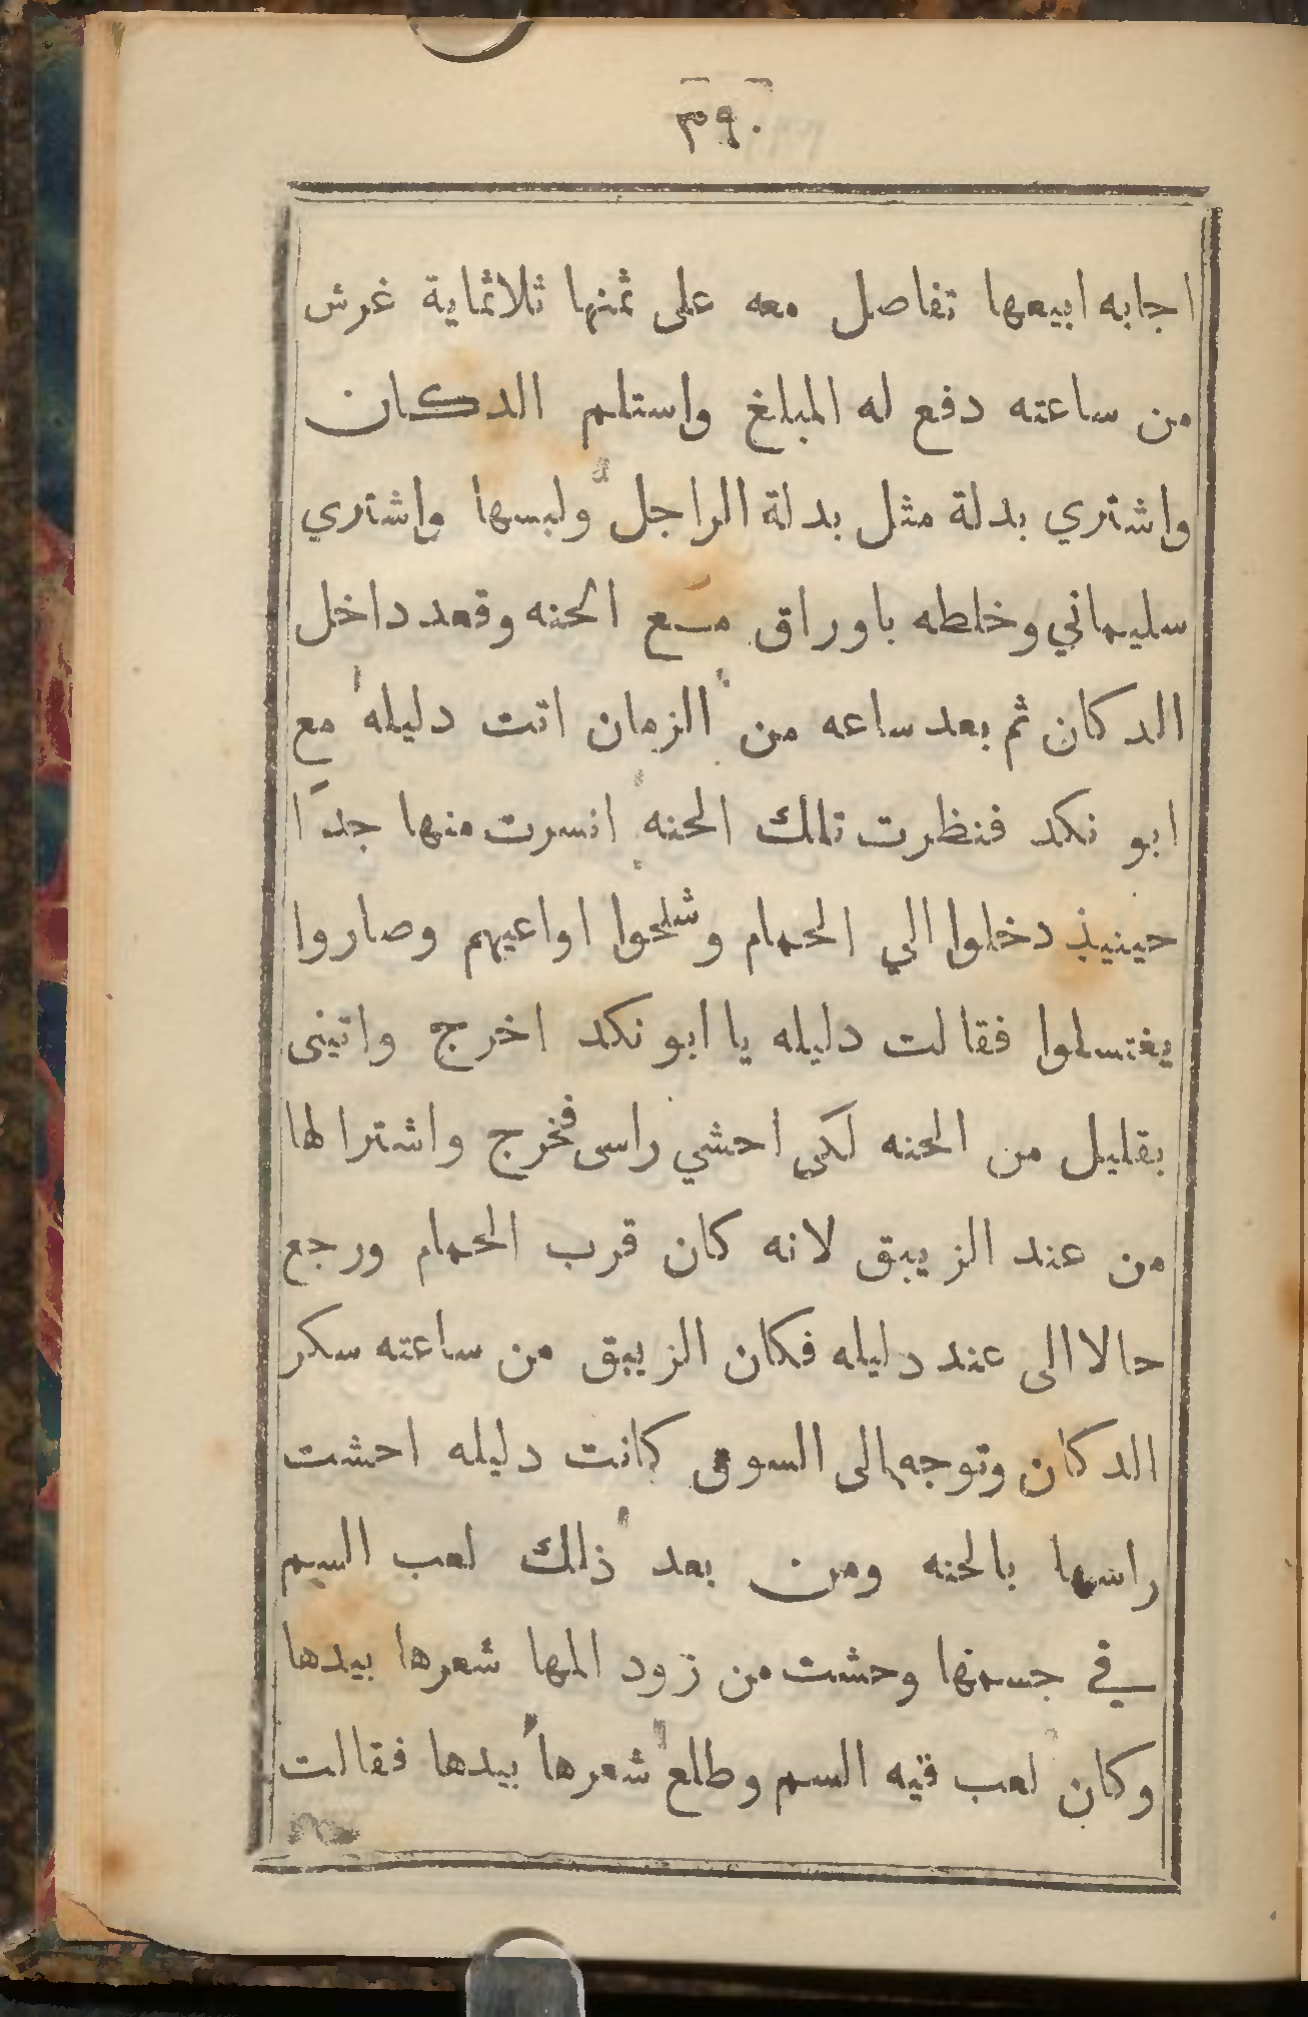 ٣٩٠
اجابه ابيعها تفاصل معه على ثمنها ثلاثماية غرش
من ساعته دفع له المبلغ واستلم الدكان
واشتري بدلة مثل بدلة الراجل ولبسها واشتري
سليماني وخلطه باوراق مع الحنه وقعد داخل
الدكان ثم بعد ساعه من الزمان اتت دليله مع
ابو نكد فنظرت تلك الحنه انسرت منها جدًا
حينيذ دخلوا الي الحمام وشلحوا اواعيهم وصاروا
يغتسلوا فقالت دليله يا ابو نكد اخرج واتينى
بقليل من الحنه لكى احشي راسى فخرج واشترا لها
من عند الزيبق لانه كان قرب الحمام ورجع
حالا الى عند دليله فكان الزيبق من ساعته سكر
الدكان وتوجه الى السوق كانت دليله احشت
راسها بالحنه ومن بعد ذلك لعب السم
في جسمها وحشت من زود المها شعرها بيدها
وكان لعب فيه السم وطلع شعرها بيدها فقالت